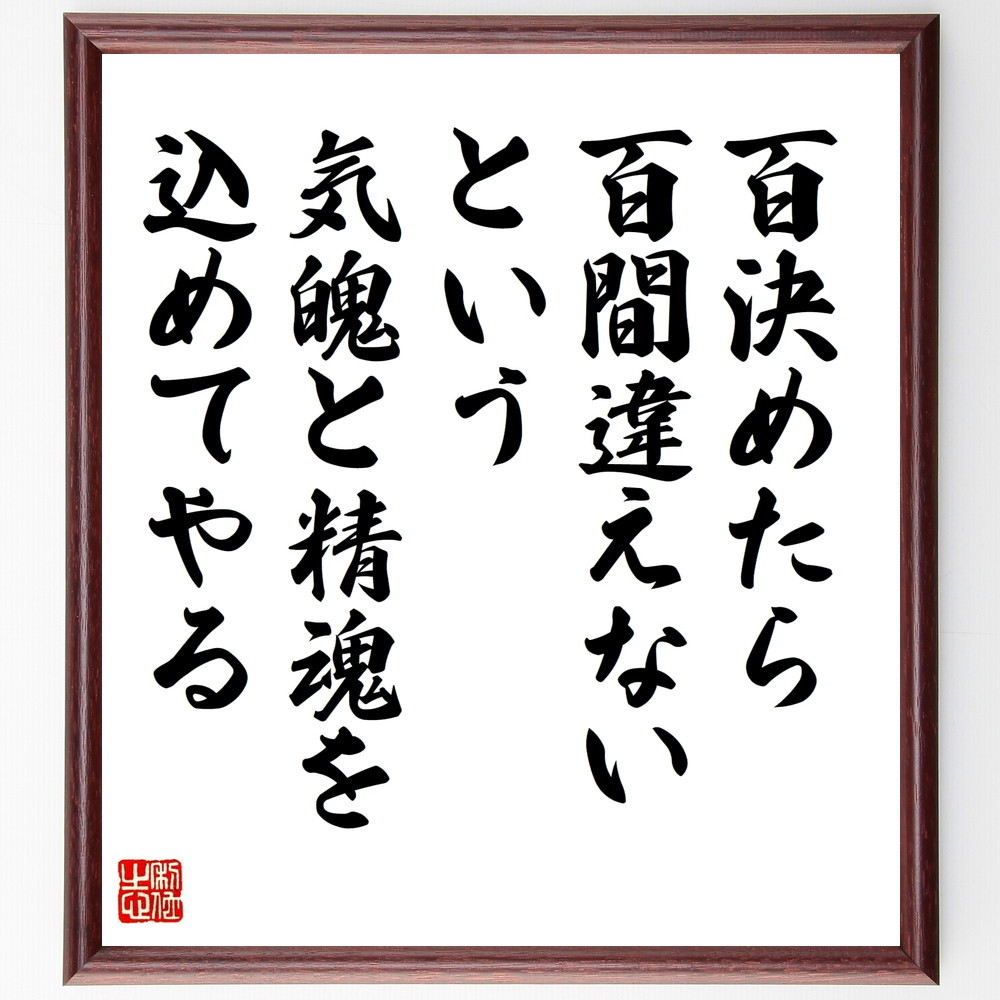 百決めたら
百間違えない
という
気魄と精魂を
込めてやる